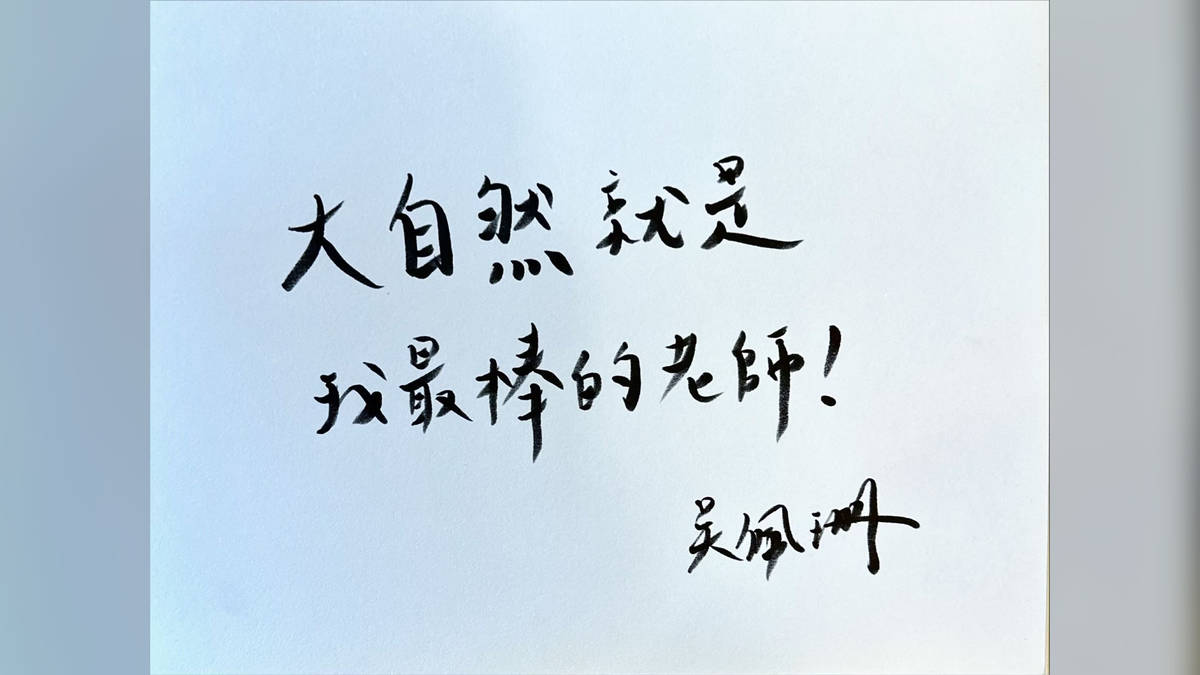 大自然就是
我最棒的老師！
吳佩珊